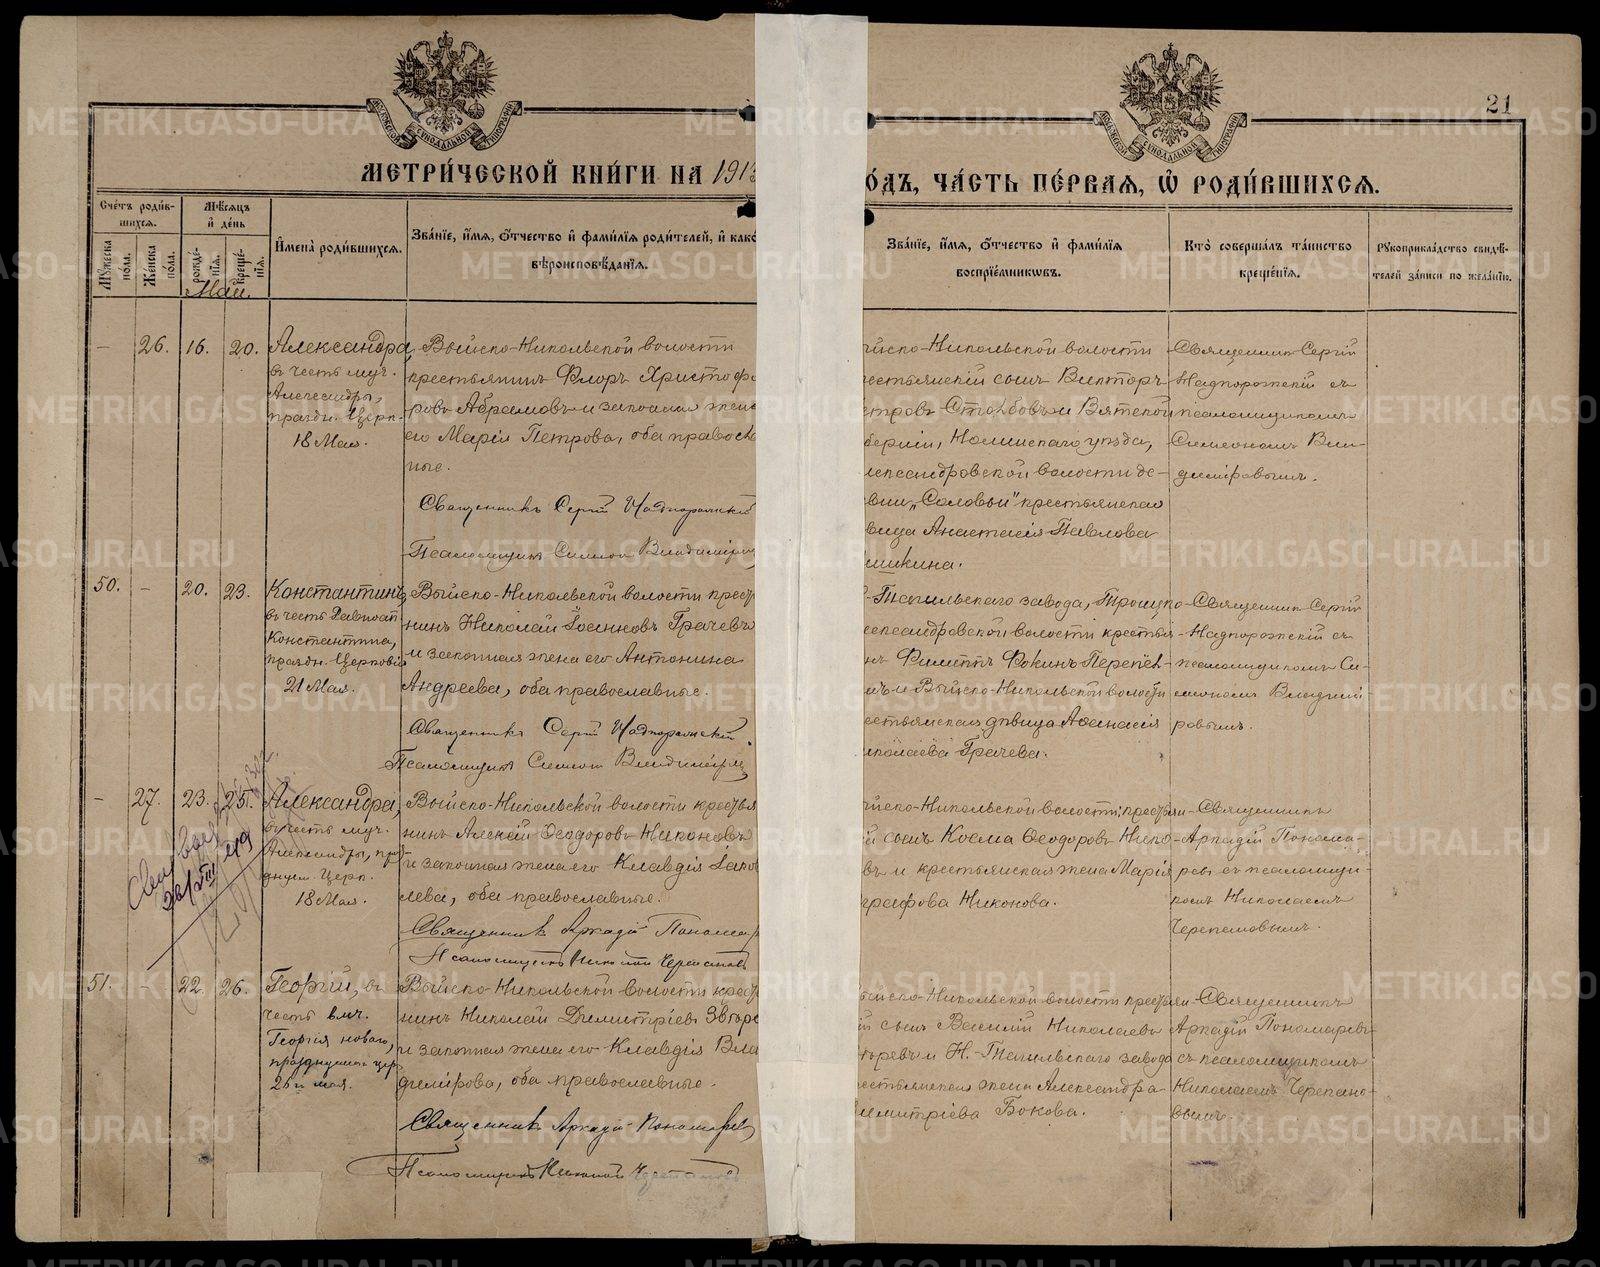 21
МЕТРИ́ЧЕСКОЙ КНИ́ГИ НА 1913
О́ДЪ, ЧА́СТЬ ПЕ́РВАЯ, Ѽ РОДИ́ВШИХСЯ.
Сче́тъ роди́в-
шихся.
Мѣ́сяцъ
и҆ де́нь
Му́жеска
по́ла.
Же́нска
по́ла.
рожде́-
нїя.
креще́-
нїя.
И҆мена̀ роди́вшихся.
Зва́нїе, и҆́мя, ѻ҆́тчество и҆ фами́лїя роди́телей, и҆ како́
вѣроисповѣ́данїя.
Зва́нїе, и҆́мя, ѻ҆́тчество и҆ фами́лїя
воспрїе́мникѡвъ.
Кто̀ соверша́лъ та́инство
креще́нїя.
Рукоприкла́дство свидѣ́-
телей за́писи по жела́нїю.
Май.
- 26. 16. 20.
Александра,
въ честь муч.
Александры,
праздн. Церк.
18 Мая.
Выйско-Никольской волости
крестьянинъ Флоръ Христофо
ровъ Абрамовъ и законная жена
его Марія Петрова, оба правосла
ные.
Священникъ Сергій Надпорожскій
Псаломщикъ Симеонъ Владиміров
ыйско-Никольской волости
естьянскій сынъ Викторъ
етровъ Столбовъ и Вятской
берніи, Нолинскаго уѣзда,
лександровской волости де-
вни „Соловьи" крестьянская
вица Анастасія Павлова
шкина.
Священникъ Сергій
Надпорожскій съ
псаломщикомъ
Симеономъ Вла-
диміровымъ.
50. - 20. 23.
Константинъ,
въ честь Равноап
Константина,
праздн. Церковію
21 Мая.
Выйско-Никольской волости крест
нинъ Николай Іоанновъ Грачевъ
и законная жена его Антонина
Андреева, оба православные.
Священникъ Сергій Надпорожскій.
Псаломщикъ Симеонъ Владиміров
-Тагильскаго завода, Троицко-
лександровской волости крестья-
нъ Филиппъ Фокинъ Перепел-
нъ и Выйско-Никольской волости
естьянская дѣвица Аѳанасія
иколаева Грачева.
Священникъ Сергій
Надпорожскій съ
псаломщикомъ Си-
меономъ Владимі-
ровымъ.
- 27. 23. 25.
Александра,
въ честь муч.
Александры, праз-
днуем. Церк.
18 Мая.
Выйско-Никольской волости крестья
нинъ Алексѣй Ѳеодоровъ Никоновъ
и законная жена его Клавдія Іаков
лева, оба православные.
Священникъ Аркадій Пономар
Псаломщикъ Николай Черепановъ
ыйско-Никольской волости, крестьян-
й сынъ Косма Ѳеодоровъ Нико-
въ и крестьянская жена Марія
рафова Никонова.
Священникъ
Аркадій Понома-
ревъ съ псаломщи-
комъ Николаемъ
Черепановымъ.
51. - 22. 26.
Георгій, въ
честь вмч.
Георгія новаго,
празднуемаго цер.
26-го мая.
Выйско-Никольской волости крест
нинъ Николай Димитріевъ Звѣре
и законная жена его Клавдія Вла
димірова, оба православные.
Священникъ Аркадій Пономарев
Псаломщикъ Николай Черепановъ
ыйско-Никольской волости крестьян-
й сынъ Василій Николаевъ
ѣревъ и Н.-Тагильскаго завода
естьянская жена Александра
имитріева Бокова.
Священникъ
Аркадій Пономаревъ
съ псаломщикомъ
Николаемъ Черепано-
вымъ.
METRIKI.GASO-URAL.RU